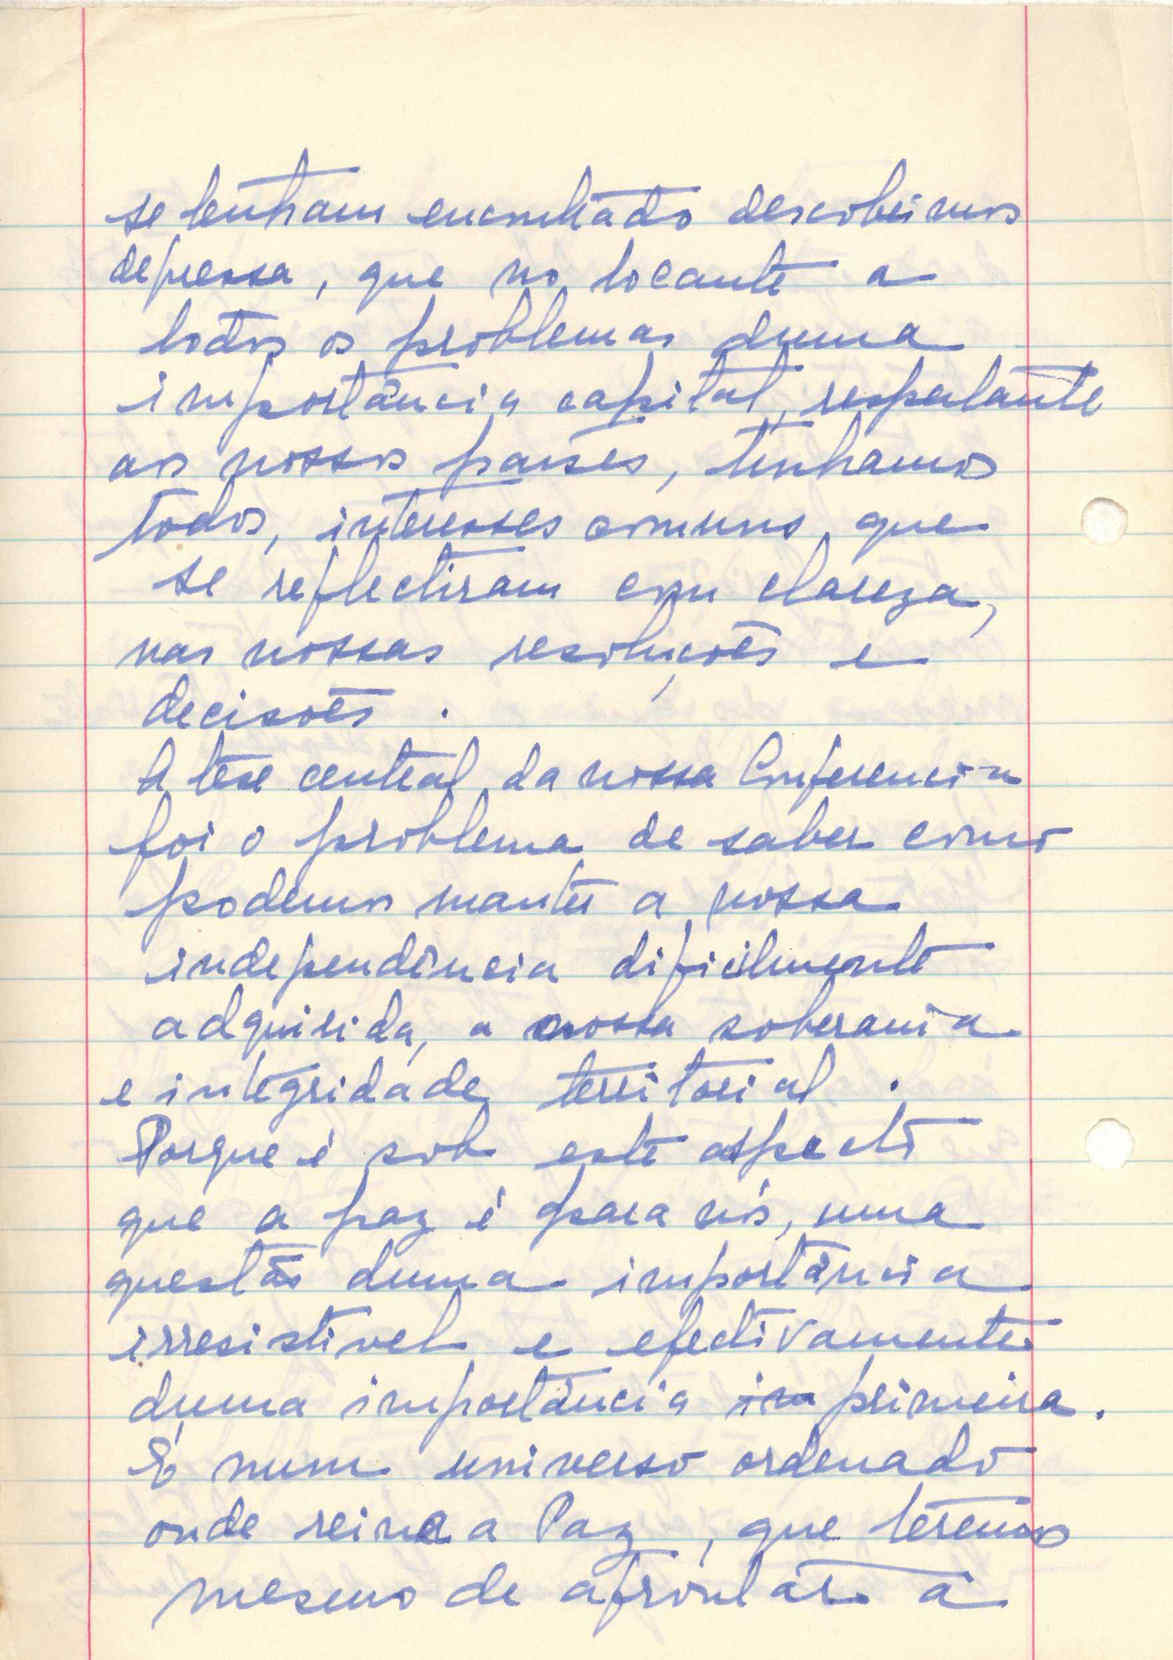 se tenham encontrado descobrimos
depressa, que no tocante a
todos os problemas duma
importância capital, respeitante
aos nossos países, tinhamos
todos, interesses comuns que
se reflectiram com clareza,
nas nossas resoluções e
decisões.
A tese central da nossa Conferencia
foi o problema de saber como
podemos manter a nossa
independência dificilmente
adquirida, a nossa soberania
e integridade territorial.
Porque é sob este aspecto
que a paz é para nós, uma
questão duma importância
irresistivel e efectivamente
duma importância im primeira.
E num universo ordenado
onde reina a Paz, que teremos
mesmo de afrontar a